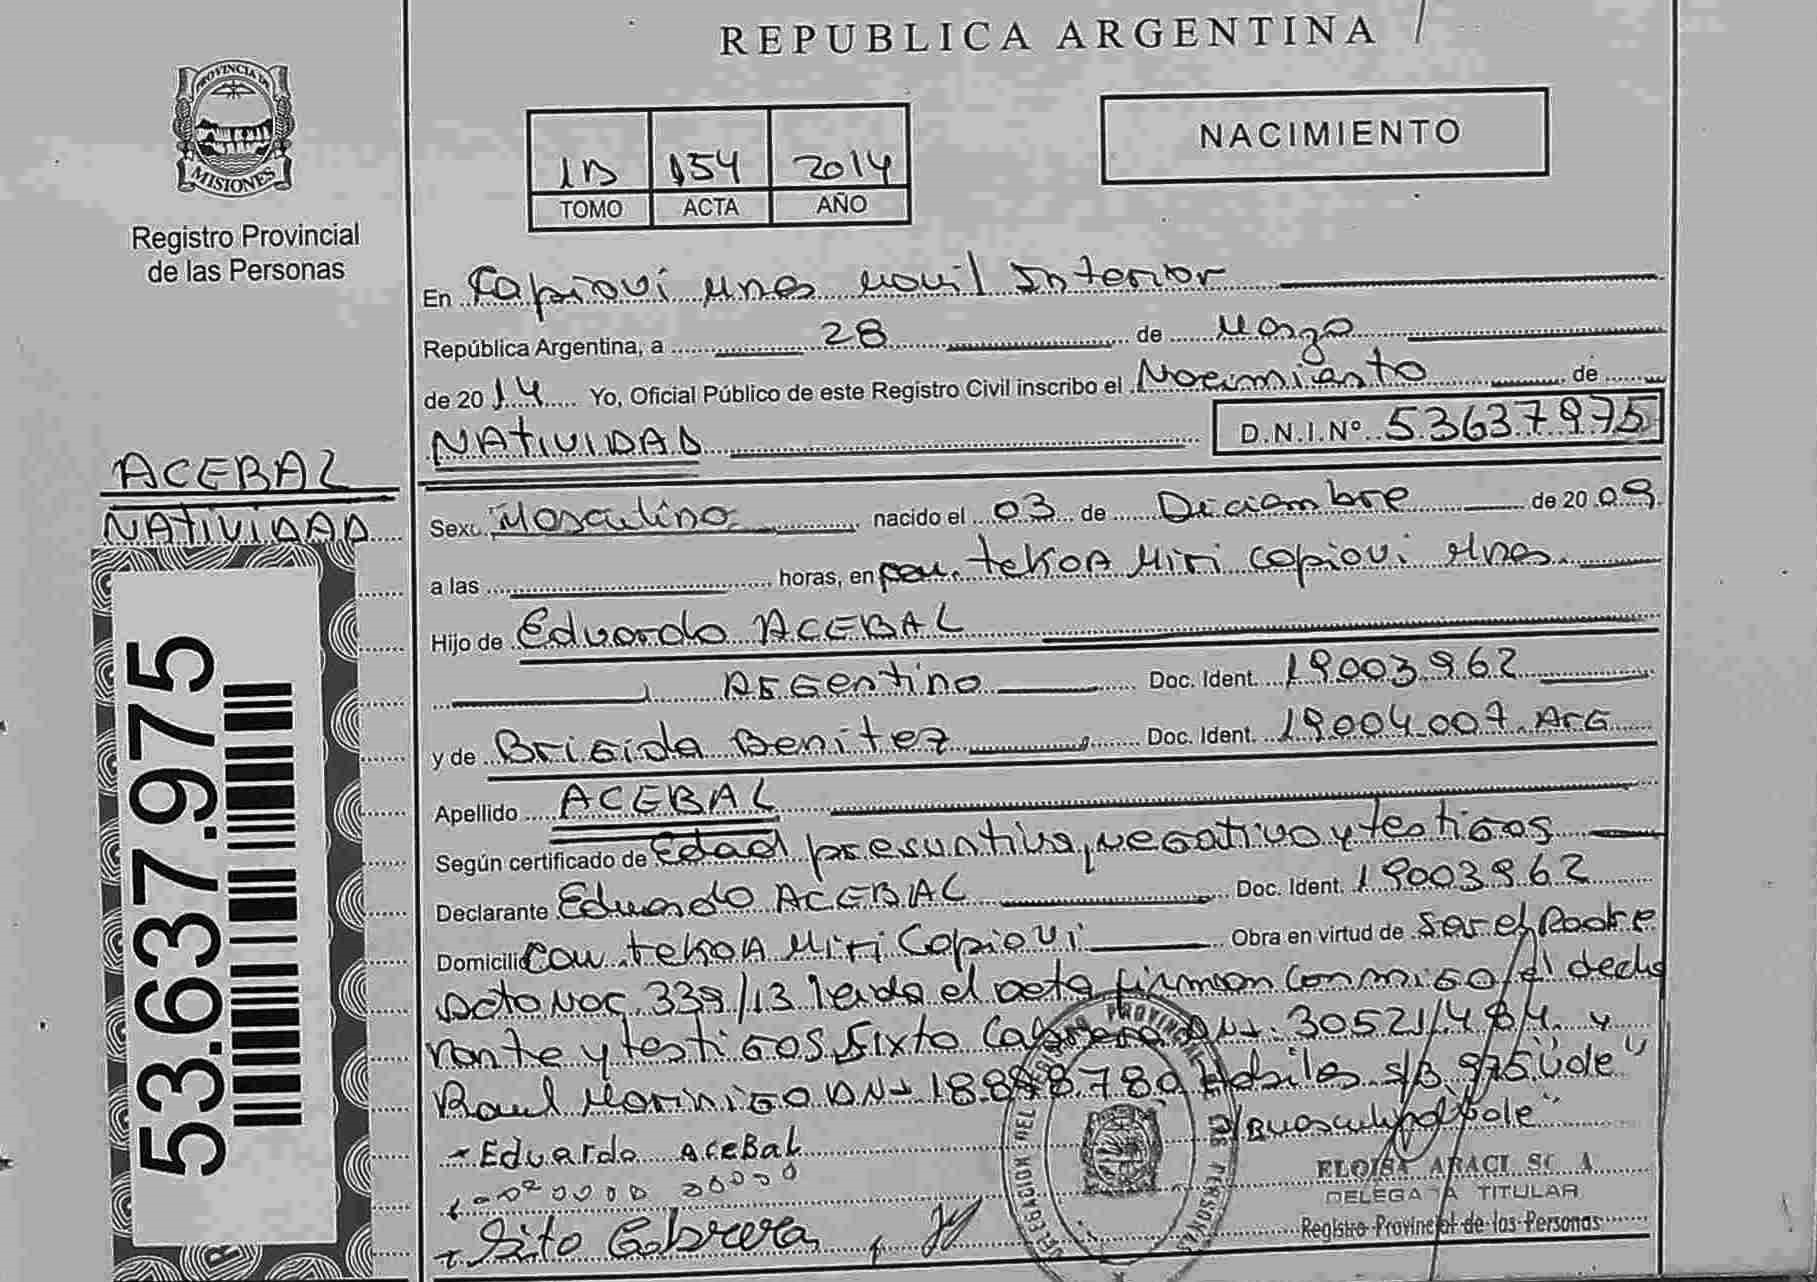 REPUBLICA ARGENTINA
PROVINCIA DE
MISIONES
Registro Provincial
de las Personas
1D 154 2014
TOMO ACTA AÑO
NACIMIENTO
En Capiovi Mnes Movil Interior
República Argentina, a 28 de Marzo
de 2014 Yo, Oficial Público de este Registro Civil inscribo el Nacimiento de
NATIVIDAD D.N.I.Nº 53637975
ACEBAL
NATIVIDAD
53.637.975
Sexo Masculino nacido el 03 de Diciembre de 2009
a las horas, en tekoA Miri Capiovi Mnes.
Hijo de Eduardo ACEBAL
Argentino Doc. Ident. 19003962
y de Brigida Benitez Doc. Ident. 19004.007. Arg
Apellido ACEBAL
Según certificado de Edad presuntiva, negativo y testigos
Declarante Eduardo ACEBAL Doc. Ident. 19003962
Domicilio tekoA Miri Capiovi Obra en virtud de Ser el Padre
339/13 leida el acta firman conmigo el decla
rante y testigos Sixto Cabrera DNI. 30521484 y
Raul Morinigo DNI Habiles s/B 975 "de"
"ole"
Eduardo ACEBAL
Sito Cabrera
DELEGACION DEL REGISTRO PROVINCIAL DE LAS PERSONAS
ELOISA ARACI
DELEGADA TITULAR
Registro Provincial de las Personas